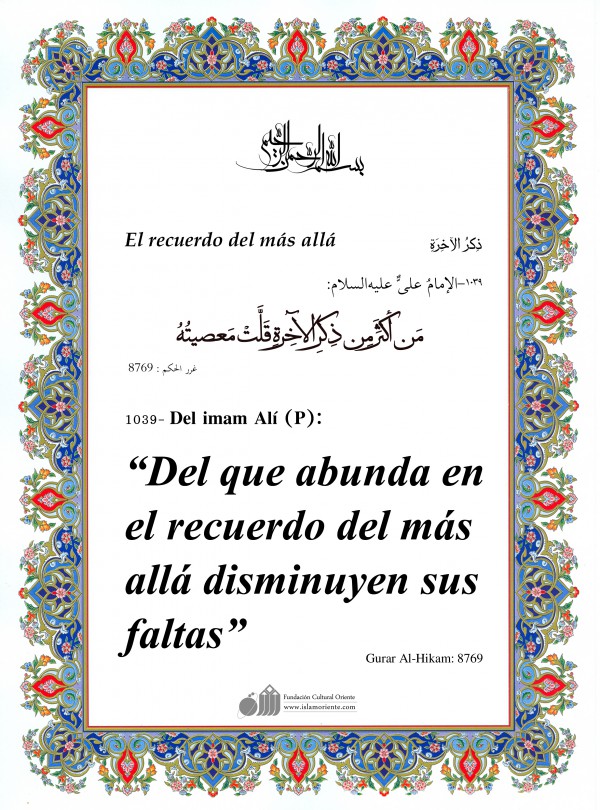 بسم الله الرحمن الرحيم
El recuerdo del más allá ذِكرُ الآخِرَةِ
۱۰۳۹–الإمامُ عليٌّ عليه‌السلام:
مَن أكثَرَ مِن ذِكرِ الآخِرَةِ قَلَّتْ مَعصيتُهُ
غرر الحكم : 8769
1039– Del imam Alí (P):
“Del que abunda en
el recuerdo del más
allá disminuyen sus
faltas”
Gurar Al-Hikam: 8769
Fundación Cultural Oriente
www.islamoriente.com